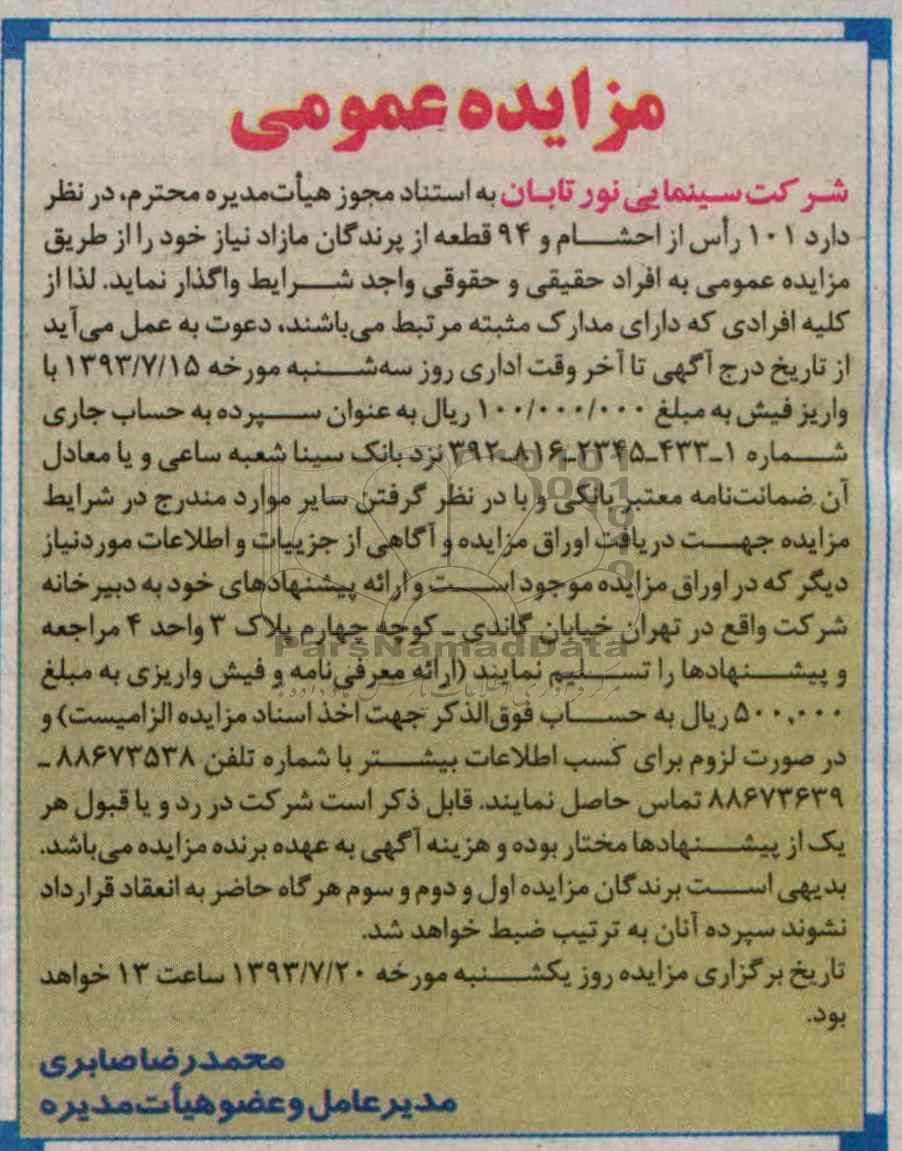 مزایده عمومی
شرکت سینمایی نور تابان به استناد مجوز هیأت‌مدیره محترم، در نظر
دارد ۱۰۱ رأس از احشام و ۹۴ قطعه از پرندگان مازاد نیاز خود را از طریق
مزایده عمومی به افراد حقیقی و حقوقی واجد شرایط واگذار نماید. لذا از
کلیه افرادی که دارای مدارک مثبته مرتبط می‌باشند، دعوت به عمل می‌آید
از تاریخ درج آگهی تا آخر وقت اداری روز سه‌شنبه مورخه ۱۳۹۳/۷/۱۵ با
واریز فیش به مبلغ ۱۰۰/۰۰۰/۰۰۰ ریال به عنوان سپرده به حساب جاری
شماره ۱-۴۳۳-۲۳۴۵-۸۱۶-۳۹۲ نزد بانک سینا شعبه ساعی و یا معادل
آن ضمانت‌نامه معتبر بانکی و با در نظر گرفتن سایر موارد مندرج در شرایط
مزایده جهت دریافت اوراق مزایده و آگاهی از جزییات و اطلاعات موردنیاز
دیگر که در اوراق مزایده موجود است و ارائه پیشنهادهای خود به دبیرخانه
شرکت واقع در تهران خیابان گاندی - کوچه چهارم پلاک ۳ واحد ۴ مراجعه
ParsNamadData
و پیشنهادها را تسلیم نمایند (ارائه معرفی‌نامه و فیش واریزی به مبلغ
۵۰۰,۰۰۰ ریال به حساب فوق‌الذکر جهت اخذ اسناد مزایده الزامیست) و
در صورت لزوم برای کسب اطلاعات بیشتر با شماره تلفن ۸۸۶۷۳۵۳۸ -
۸۸۶۷۳۶۳۹ تماس حاصل نمایند. قابل ذکر است شرکت در رد و یا قبول هر
یک از پیشنهادها مختار بوده و هزینه آگهی به عهده برنده مزایده می‌باشد.
بدیهی است برندگان مزایده اول و دوم و سوم هرگاه حاضر به انعقاد قرارداد
نشوند سپرده آنان به ترتیب ضبط خواهد شد.
تاریخ برگزاری مزایده روز یکشنبه مورخه ۱۳۹۳/۷/۲۰ ساعت ۱۳ خواهد
بود.
محمدرضا صابری
مدیرعامل و عضو هیأت‌مدیره